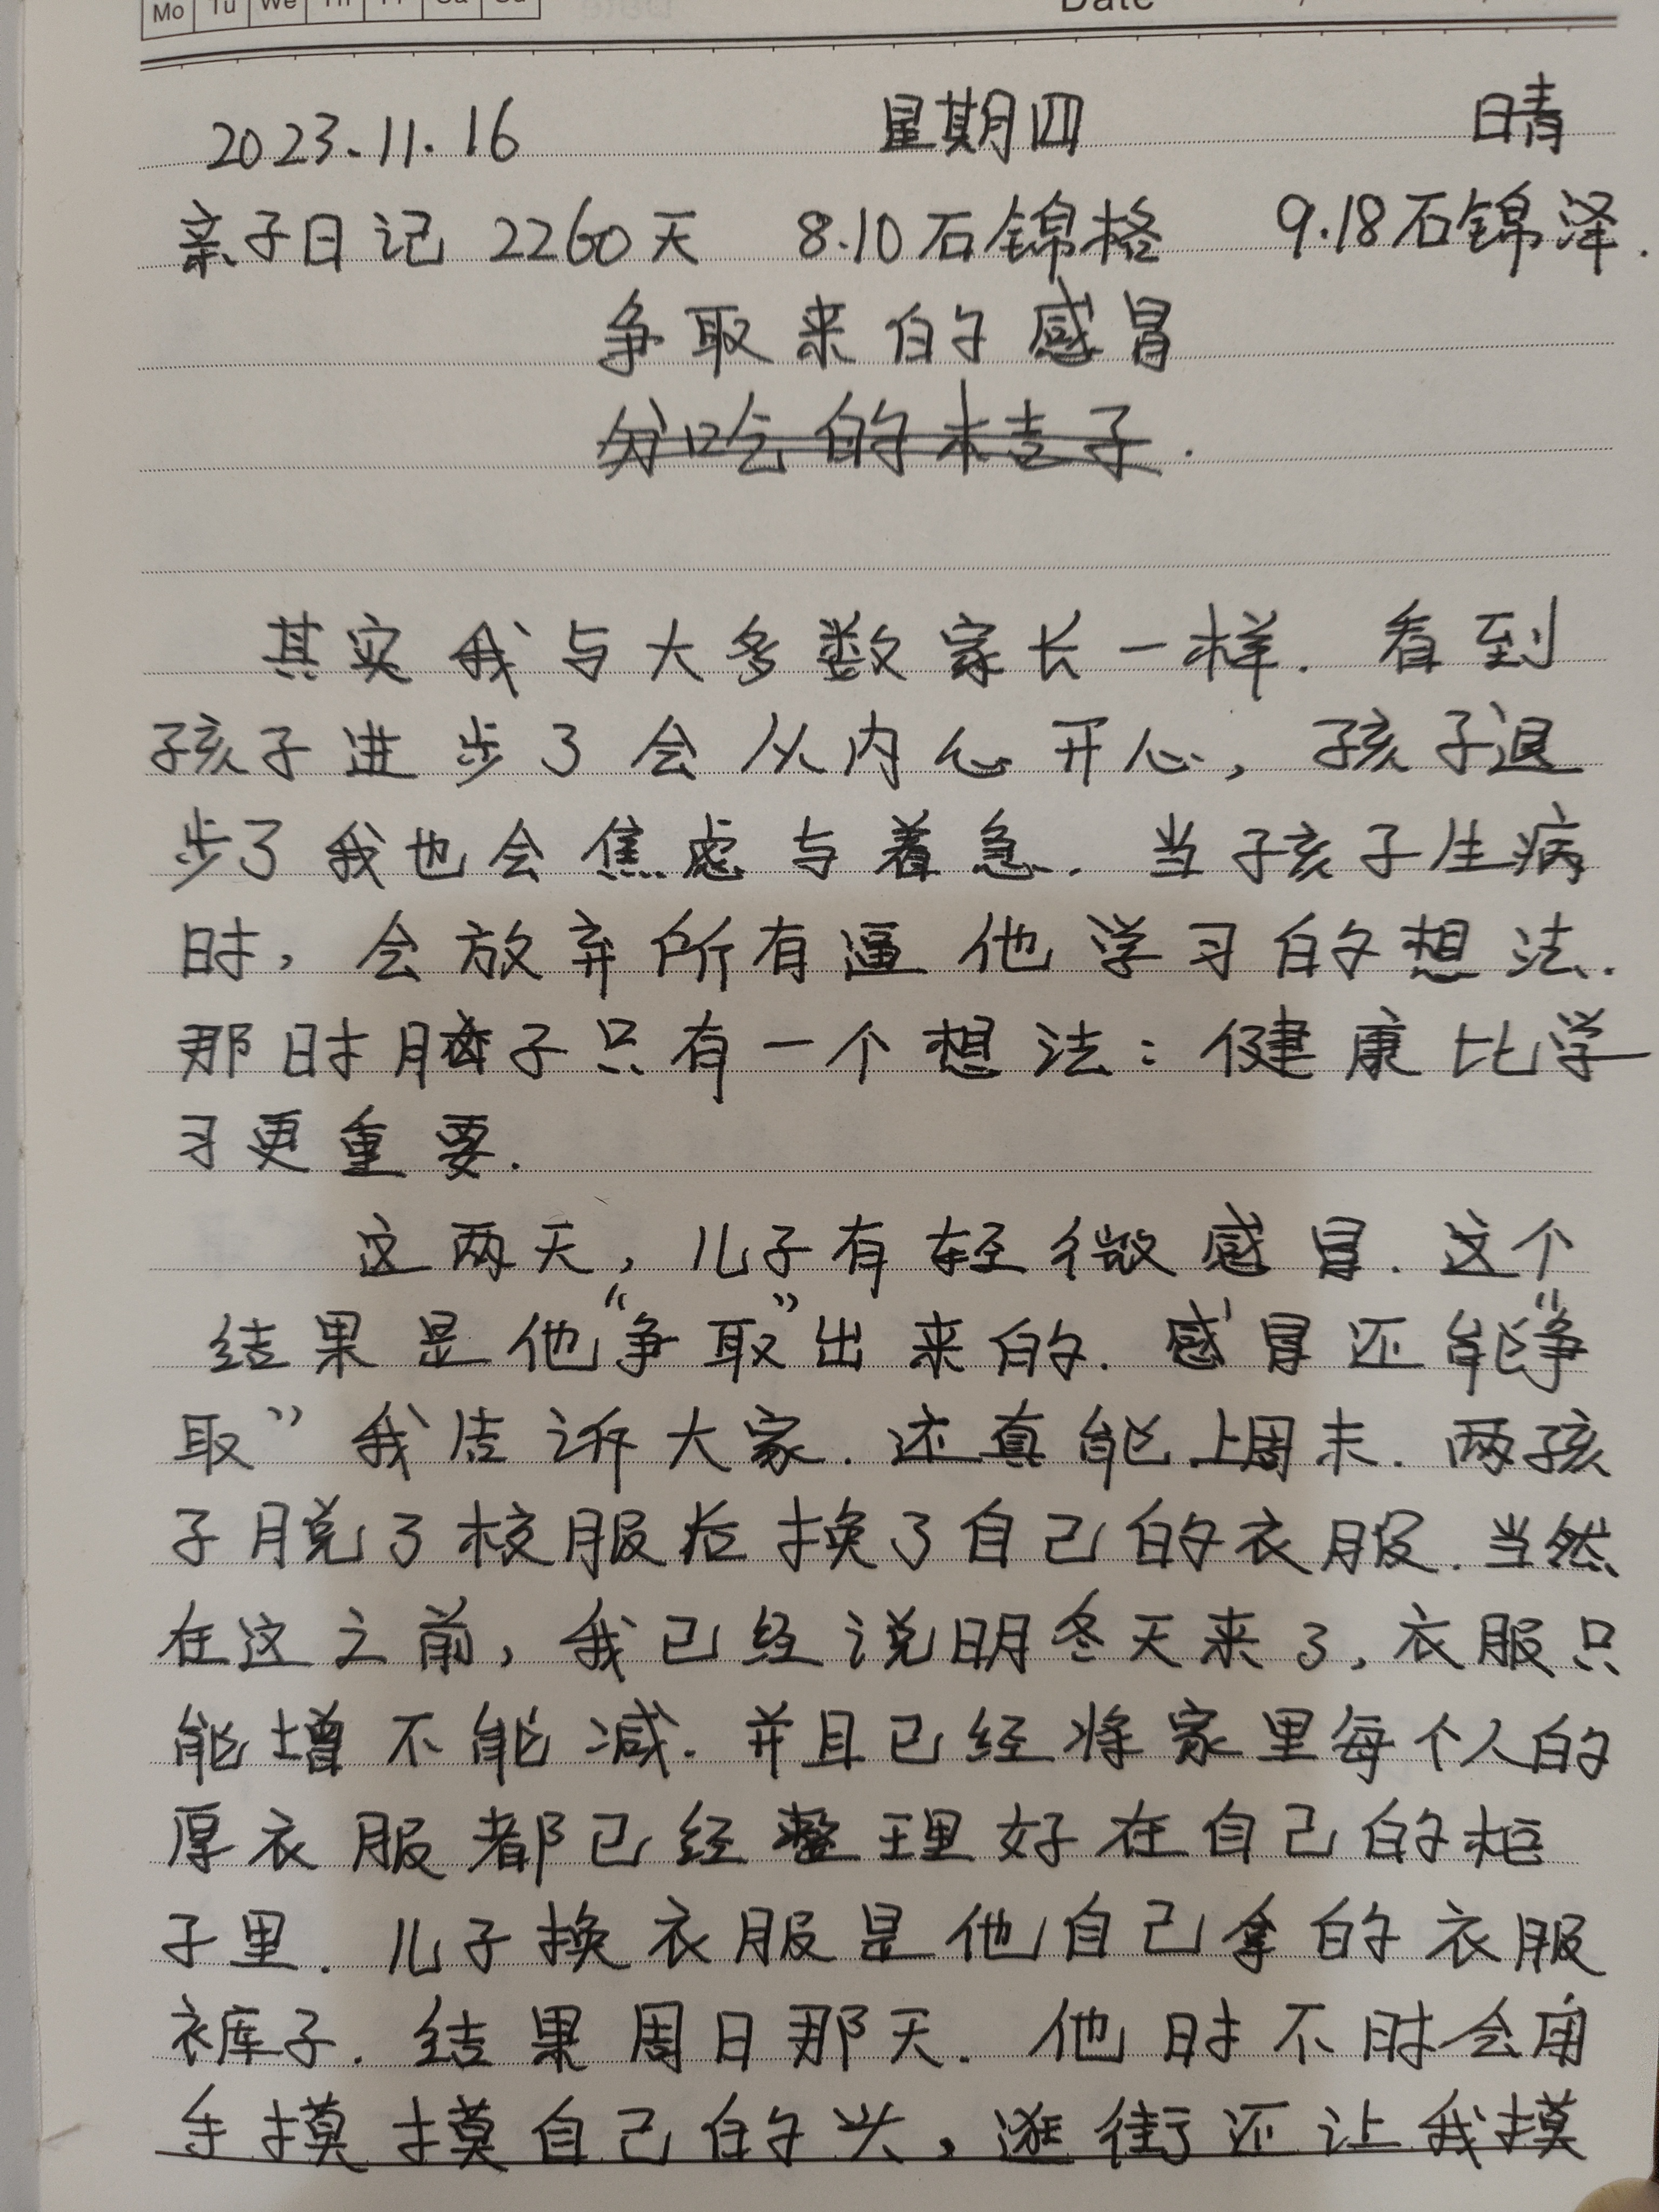 Mo Tu We Th Fr Sa Su
Date
2023.11.16 星期四 晴
亲子日记 2260天 8.10石锦格 9.18石锦泽.
争取来的感冒
其实我与大多数家长一样.看到
孩子进步了会从内心开心,孩子退
步了我也会焦虑与着急.当孩子生病
时,会放弃所有逼他学习的想法.
那时脑子只有一个想法:健康比学
习更重要.
这两天,儿子有轻微感冒.这个
结果是他“争取”出来的.感冒还能“争
取”我告诉大家.还真能.上周末.两孩
子脱了校服后换了自己的衣服.当然
在这之前,我已经说明冬天来了,衣服只
能增不能减.并且已经将家里每个人的
厚衣服都已经整理好在自己的柜
子里.儿子换衣服是他自己拿的衣服
裤子.结果周日那天.他时不时会用
手摸摸自己的头,逛街还让我摸